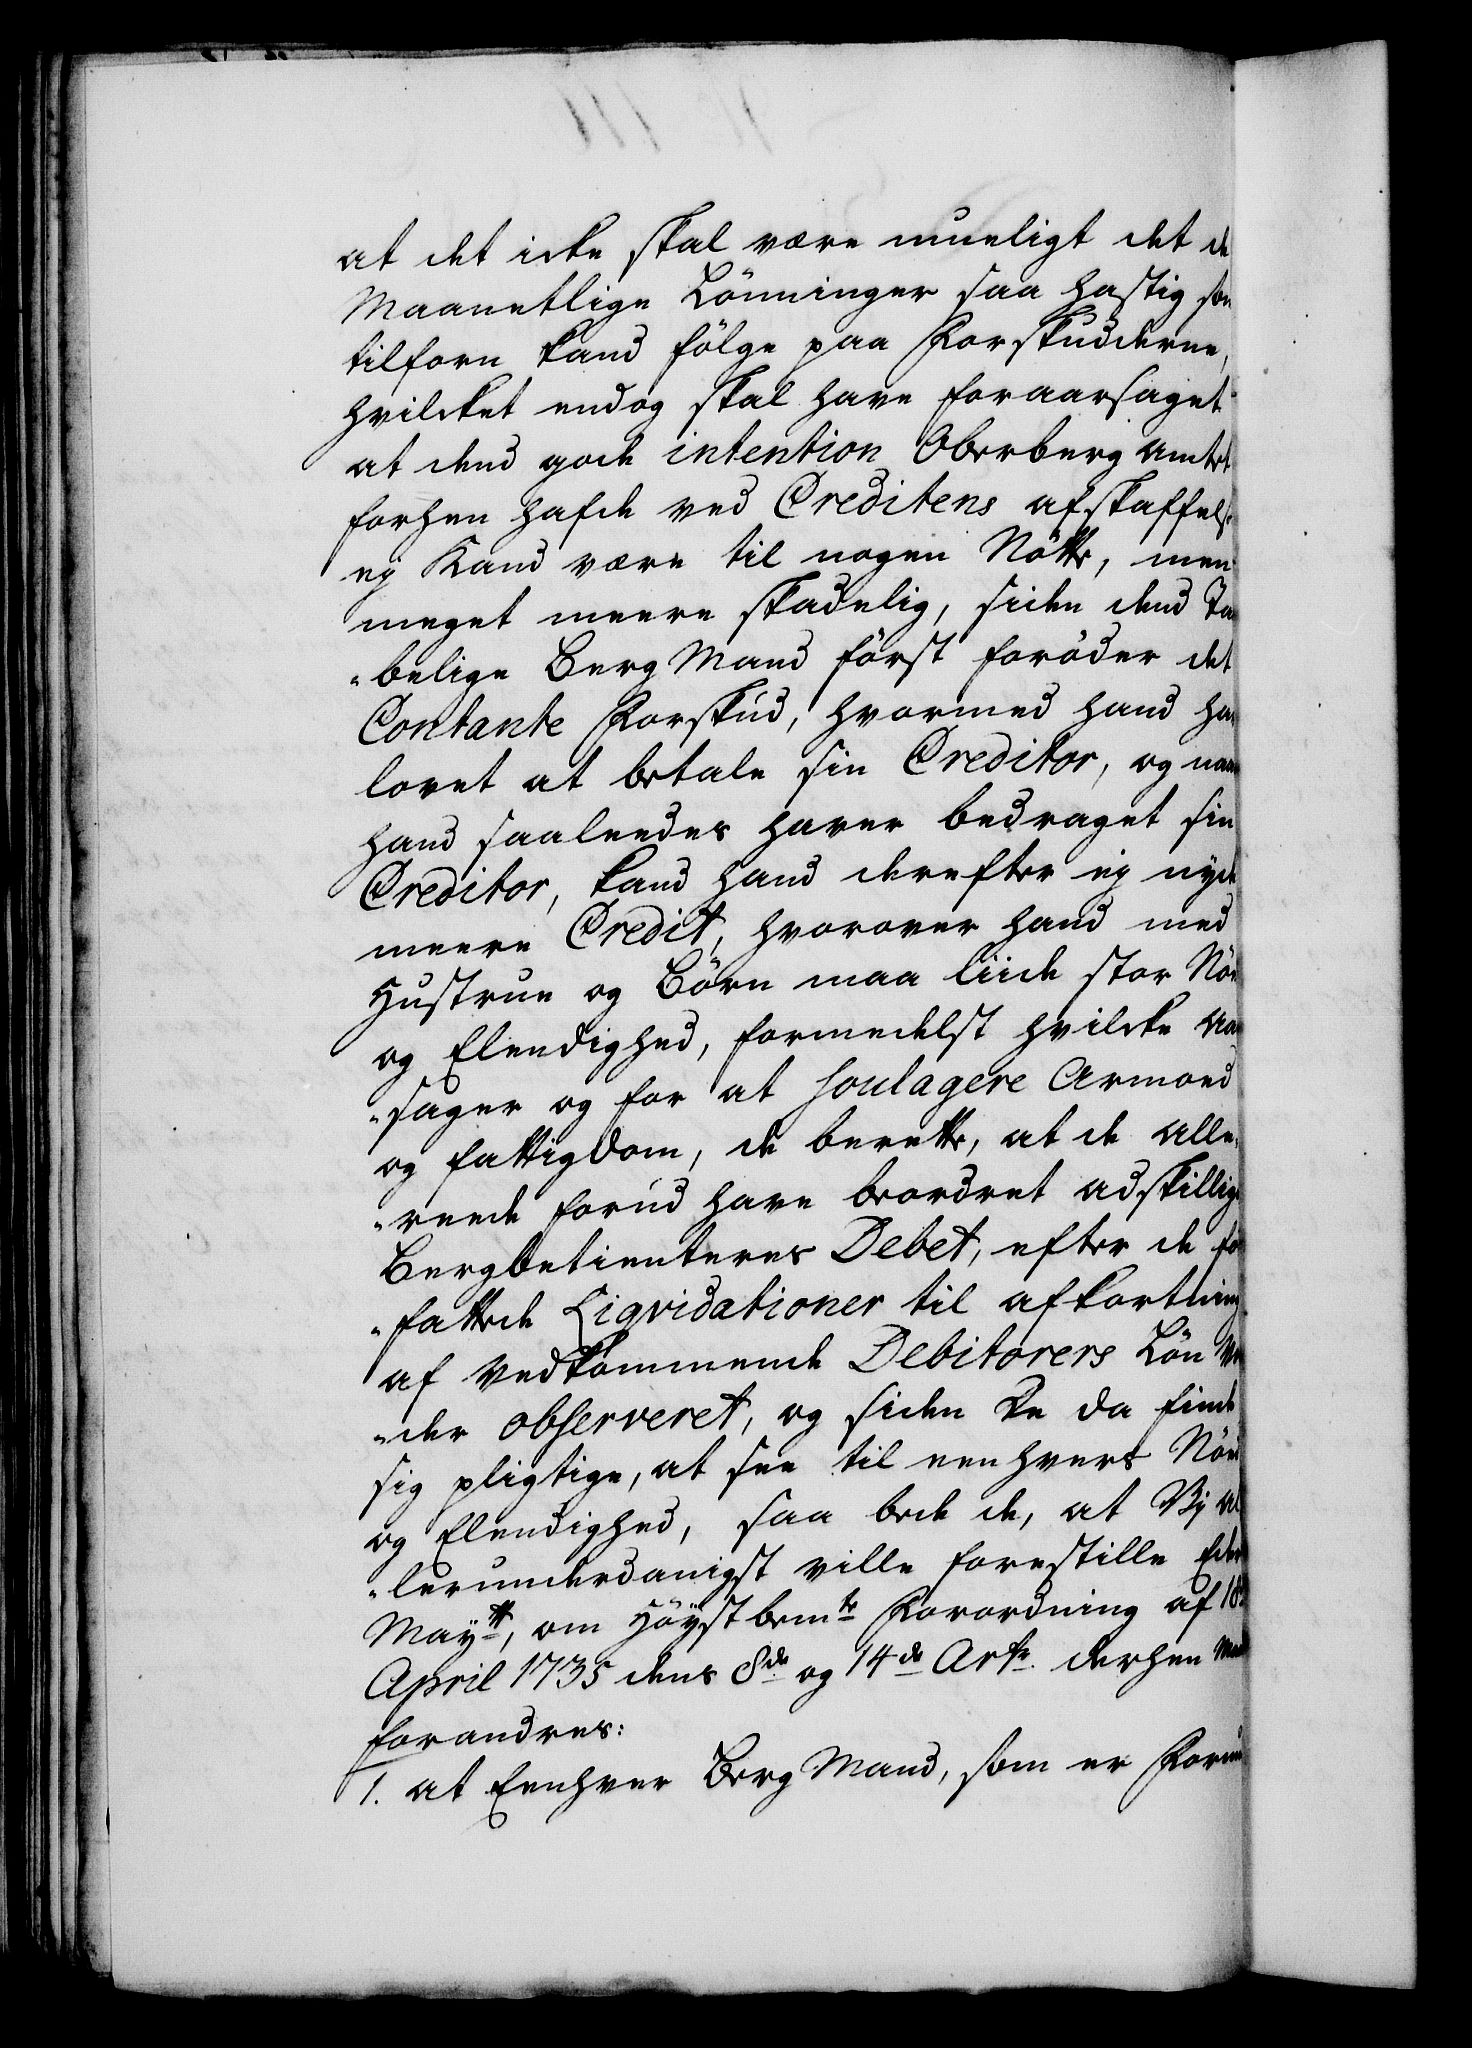 at det icke skal være mueligt det de
Maanetlige Lönninger saa hastig som
tilforn kand fölge paa Forskudderne,
hvilcket endog skal have foraarsaget
at dend gode intention Oberberg Amtet
forhen hafde ved Creditens afskaffelse
ej Kand være til nogen Nötte, men
meget meere skadelig, siden dend Ta
-belige Berg Mand först foröder det
Contante Forskud, hvormed hand ha
lovet at betale sin Creditor, og naar
hand saaleedes haver bedraget sin
Creditor, kand hand derefter ej nyde
meere Credit, hvorover hand med
Hustrue og Börn maa liide stor Nöd
og Elendighed, formedelst hvilcke Aar
-sager og for at soulagere Armoed
og fattigdom, de berette, at de alle-
-reede forud have beordret adskillige
Bergbetienteres Debet, efter de for
-fattede Liqvidationer til afkortning
af vedkommende Debitorers Lön
-der observeret, og siden de da finde
sig pligtige, at see til eenhvers Nöd
og Elendighed, saa bede de, at Vj al
-lerunderdanigst ville forestille Eders
Maytt, om Höystbemte Forordning af 18
April 1735 dens 8de og 14de Artr. derhen Maatte
forandres:
1. at Eenhver Berg Mand, som er